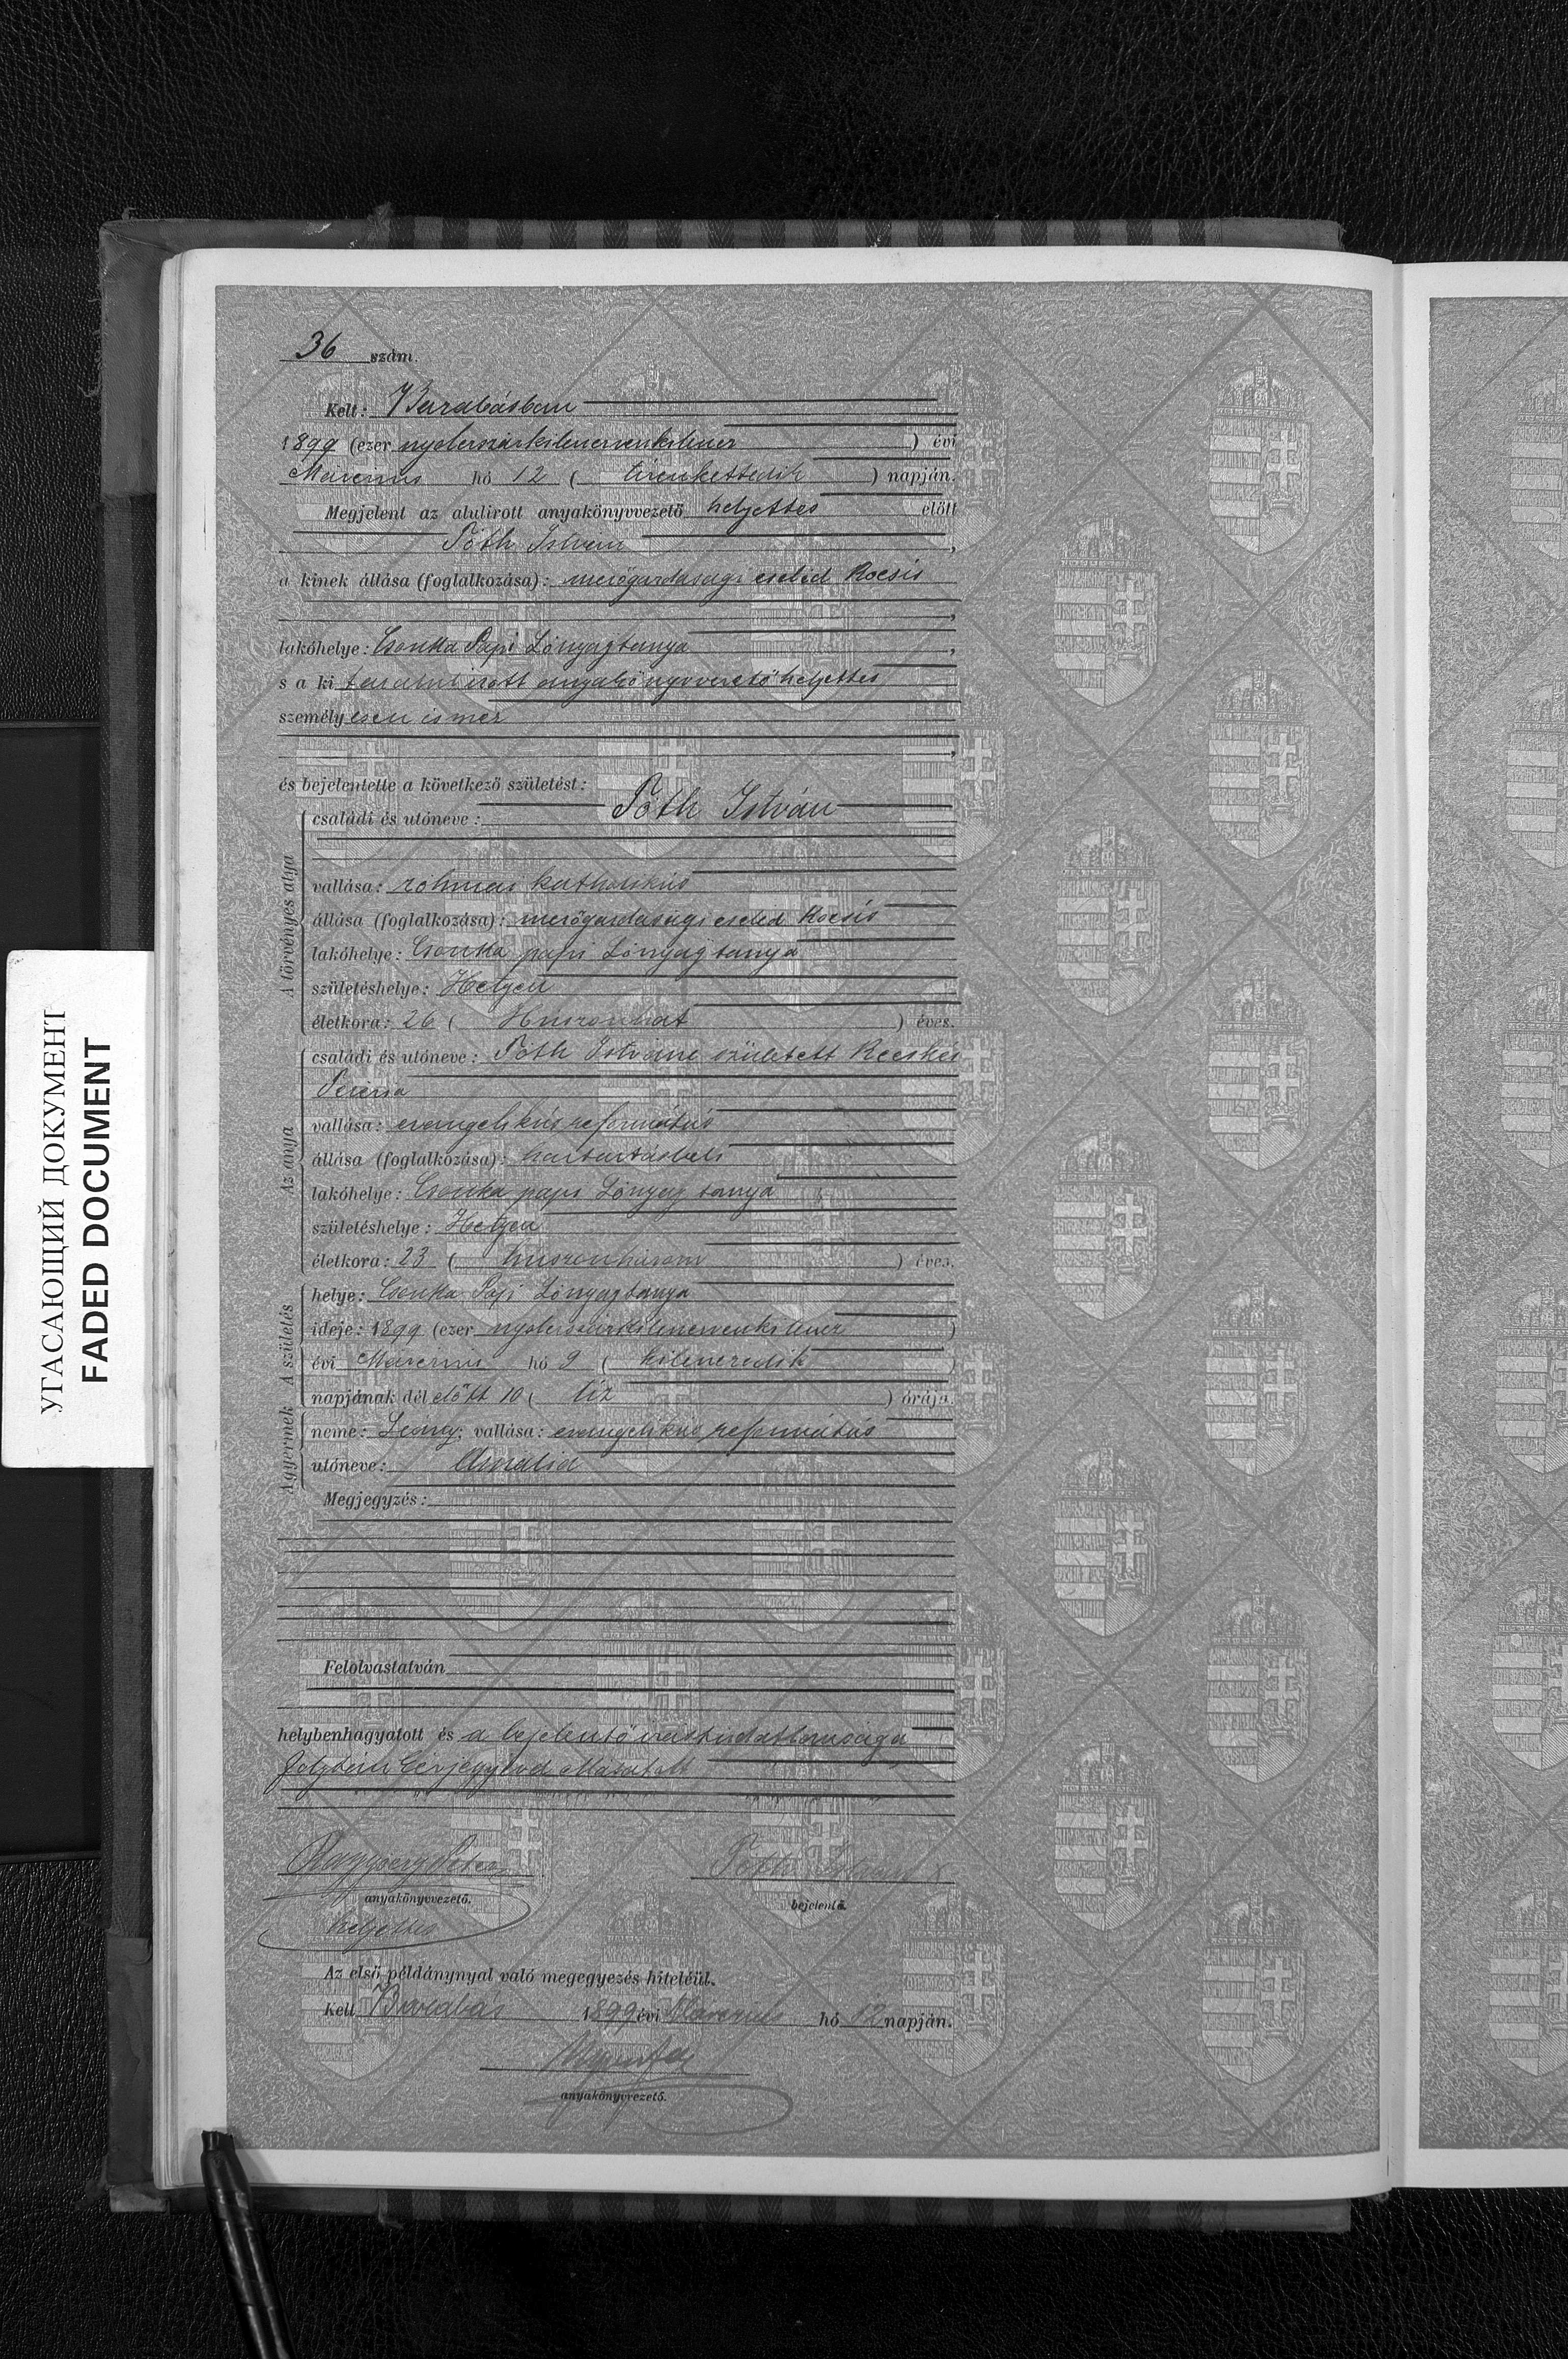 36 szám.
Kelt: Barabásban
1899 (ezer nyolczszázkilenczvenkilencz) évi
Márczius hó 12 (tizenkettedik) napján.
Megjelent az alulirott anyakönyvvezető helyettes előtt
Tóth István,
a kinek állása (foglalkozása): mezőgazdasági cseléd Kocsis
,
lakóhelye: Csonka Papi Lónyay tanya,
s a kit az alulirott anyakönyvvezető helyettes
személyesen ismer
,
és bejelentette a következő születést:
A törvényes atya
családi és utóneve: Tóth István
vallása: római katholikus
állása (foglalkozása): mezőgazdasági cseléd Kocsis
lakóhelye: Csonka papi Lónyay tanya
születéshelye: Hetyen
életkora: 26 (Huszonhat) éves.
Az anya
családi és utóneve: Tóth Istvánné született Kecskés
Terézia
vallása: evangelikus református
állása (foglalkozása): háztartásbeli
lakóhelye: Csonka papi Lónyay tanya
születéshelye: Hetyen
életkora: 23 (huszonhárom) éves.
A születés
helye: Csonka Papi Lónyay tanya
ideje: 1899 (ezer nyolczszázkilenczvenkilencz)
évi Márczius hó 9 (kilenczedik)
napjának dél előtt 10 (tiz) órája.
A gyermek
neme: Leány; vallása: evangelikus református
utóneve: Amália
Megjegyzés:
Felolvastatván
helybenhagyatott és a bejelentő irástudatlansága
folytán kézjegyével ellátatott
Tóth István x
anyakönyvvezető.
bejelentő.
helyettes
Az első példánynyal való megegyezés hiteléül.
Kelt Barabás 1899 évi Márczius hó 12 napján.
anyakönyvvezető.
УГАСАЮЩИЙ ДОКУМЕНТ
FADED DOCUMENT